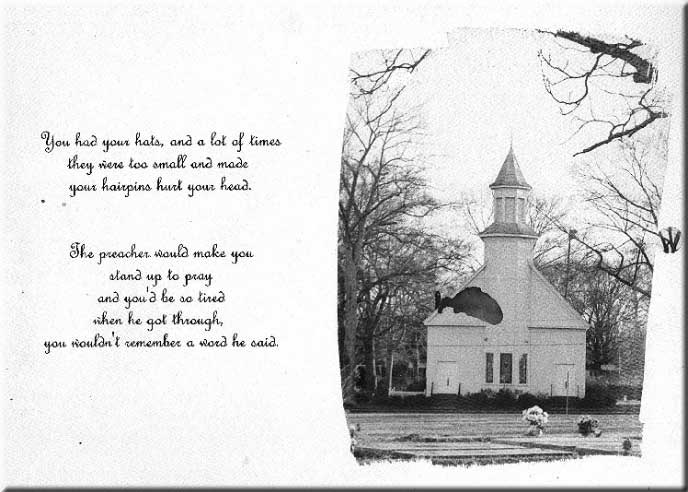 You had your hats, and a lot of times
they were too small and made
your hairpins hurt your head.
The preacher would make you
stand up to pray
and you'd be so tired
when he got through,
you wouldn't remember a word he said.